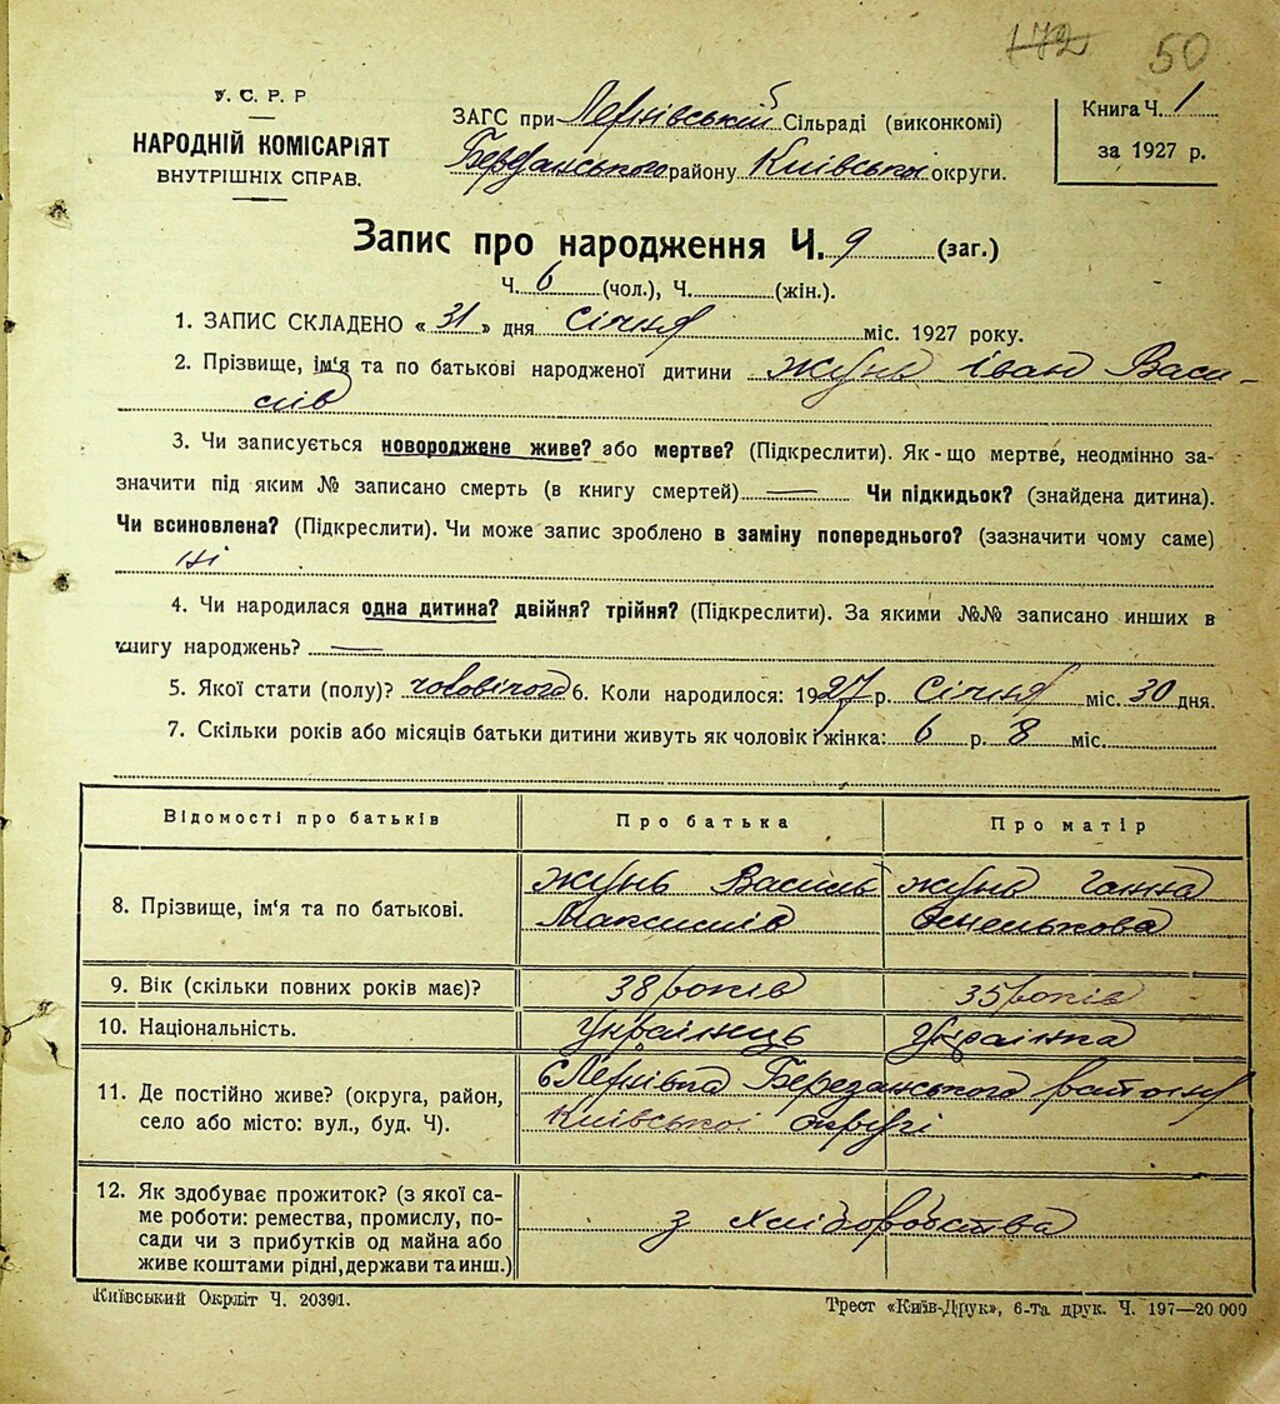 172 50
У. С. Р. Р
НАРОДНІЙ КОМІСАРІЯТ
ВНУТРІШНІХ СПРАВ.
ЗАГС при Лехнівській Сільраді (виконкомі)
Березанського району Київської округи.
Книга Ч. 1
за 1927 р.
Запис про народження Ч. 9 (заг.)
Ч. 6 (чол.), Ч. (жін.).
1. ЗАПИС СКЛАДЕНО « 31 » дня Січня міс. 1927 року.
2. Прізвище, ім'я та по батькові народженої дитини Жунь Іван Васи-
лів
3. Чи записується новороджене живе? або мертве? (Підкреслити). Як-що мертве, неодмінно за-
значити під яким № записано смерть (в книгу смертей) — Чи підкидьок? (знайдена дитина).
Чи всиновлена? (Підкреслити). Чи може запис зроблено в заміну попереднього? (зазначити чому саме)
ні
4. Чи народилася одна дитина? двійня? трійня? (Підкреслити). За якими №№ записано инших в
книгу народжень? —
5. Якої стати (полу)? чоловічого 6. Коли народилося: 1927 р. Січня міс. 30 дня.
7. Скільки років або місяців батьки дитини живуть як чоловік і жінка: 6 р. 8 міс.
Відомості про батьків Про батька Про матір
8. Прізвище, ім'я та по батькові.
Жунь Василь
Максимів
Жунь Ганна
Омелькова
9. Вік (скільки повних років має)? 38 років 35 років
10. Національність. Українець Українка
11. Де постійно живе? (округа, район,
село або місто: вул., буд. Ч).
с Лехнівка Березанського району
Київської округі
12. Як здобуває прожиток? (з якої са-
ме роботи: ремества, промислу, по-
сади чи з прибутків од майна або
живе коштами рідні, держави та инш.)
з хліборобства
Київський Окрліт Ч. 20391.
Трест «Київ-Друк», 6-та друк. Ч. 197—20 000